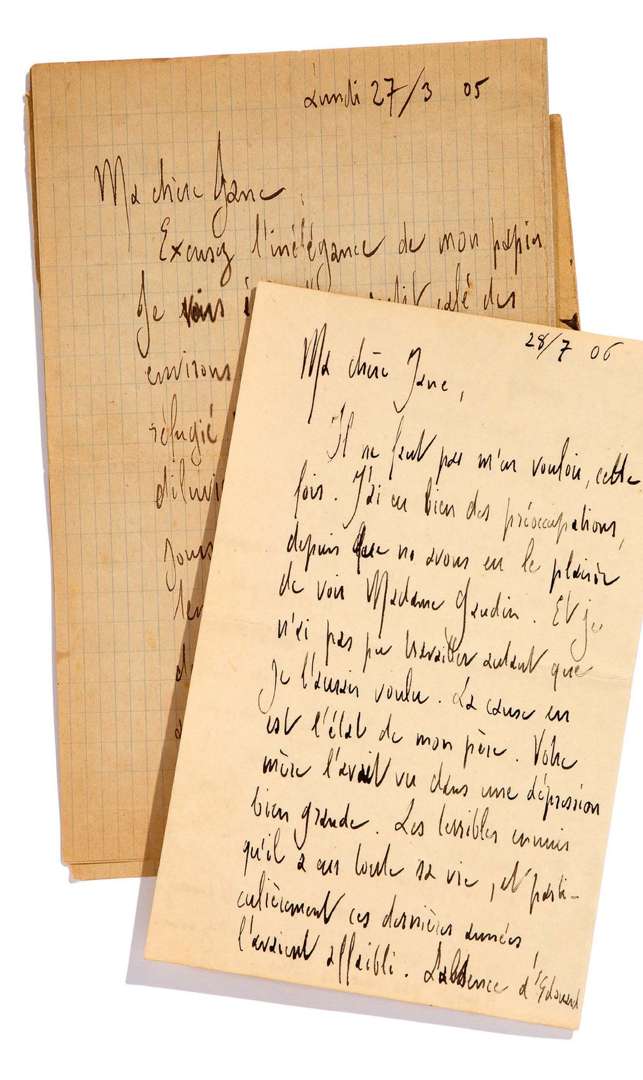 Lundi 27/3 05
Ma chère Jane,
Excusez l'inélégance de mon papier
Je vous é
environs
réfugié
diluvi
jours
28/7 06
Ma chère Jane,
Il ne faut pas m'en vouloir, cette
fois. J'ai eu bien des préoccupations,
depuis que ns avons eu le plaisir
de voir Madame Gaudin. Et je
n'ai pas pu travailler autant que
je l'aurais voulu. La cause en
est l'état de mon père. Votre
mère l'avait vu dans une dépression
bien grande. Les terribles ennuis
qu'il a eus toute sa vie, et parti-
culièrement ces dernières années,
l'avaient affaibli. L'absence d'Edouard